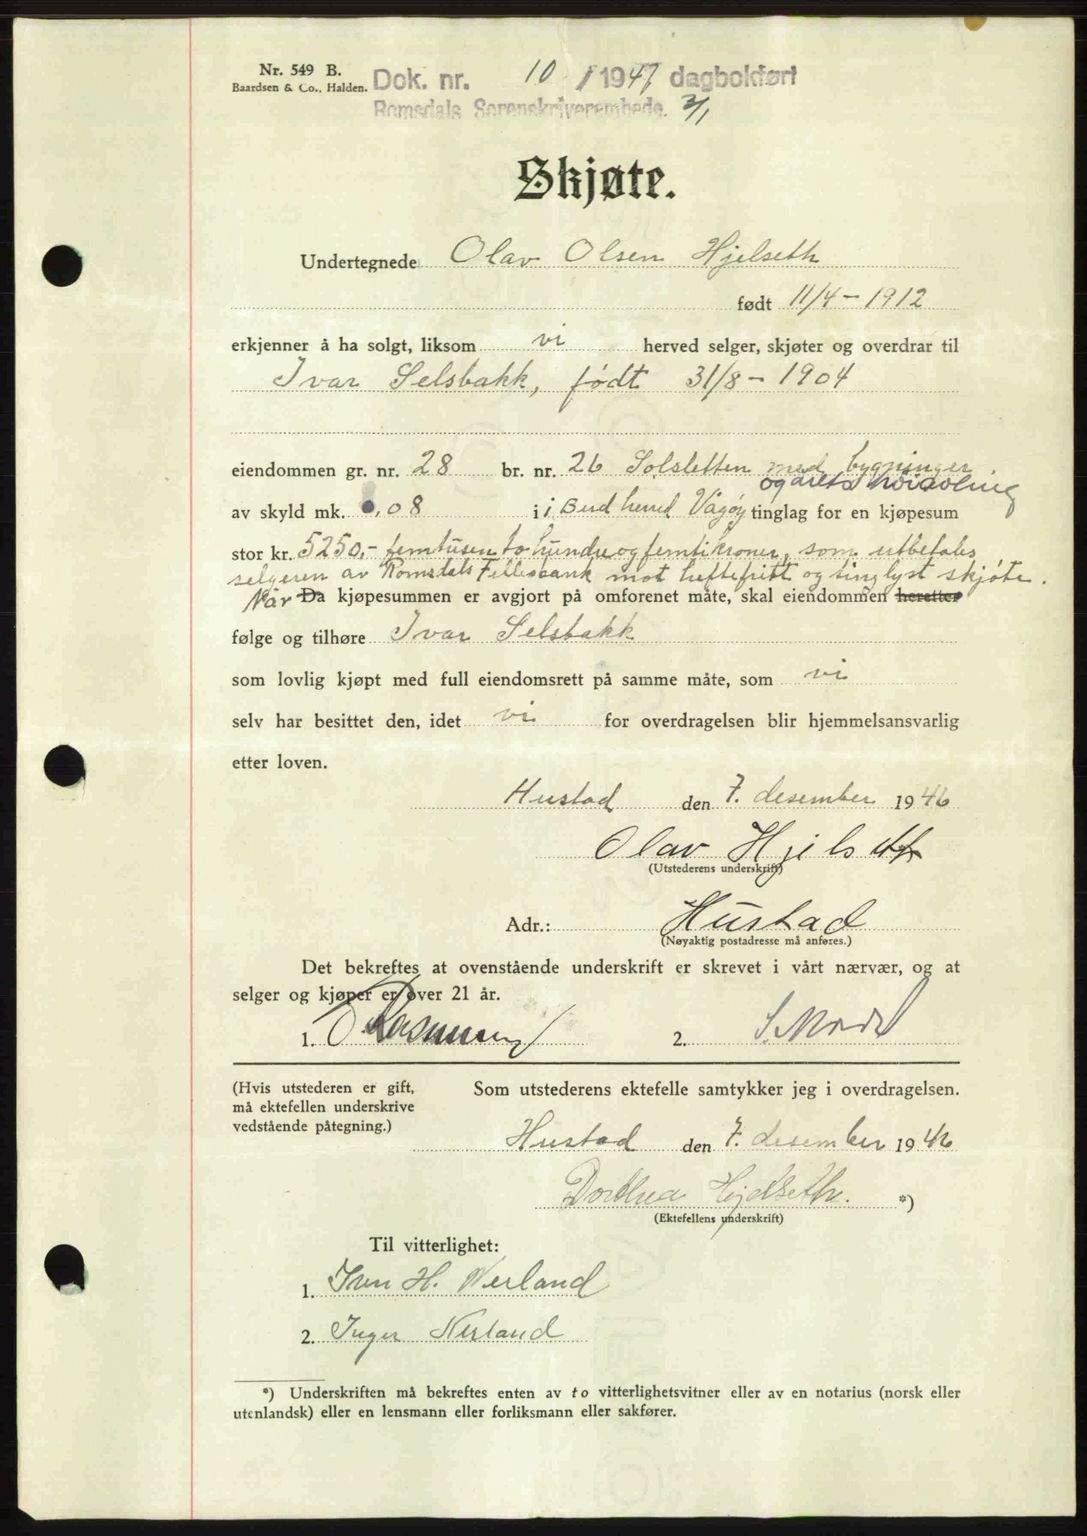 Nr. 549 B.
Baardsen & Co., Halden.
Dok. nr. 10 / 1947 dagbokført
Romsdals Sorenskriverembede. 3/1
Skjøte.
Undertegnede Olav Olsen Hjelseth
født 11/4 - 1912
erkjenner å ha solgt, liksom vi herved selger, skjøter og overdrar til
Ivar Selsbakk, født 31/8 - 1904
eiendommen gr. nr. 28 br. nr. 26 Solsletten med bygninger
og årets
av skyld mk. 0,08 i i Bud herred Vågøy tinglag for en kjøpesum
stor kr. 5250,- femtusen to hundre og femti kroner, som utbetales
selgeren av Romsdals Fellesbank mot heftefritt og tinglyst skjøte.
Når Da kjøpesummen er avgjort på omforenet måte, skal eiendommen heretter
følge og tilhøre Ivar Selsbakk
som lovlig kjøpt med full eiendomsrett på samme måte, som vi
selv har besittet den, idet vi for overdragelsen blir hjemmelsansvarlig
etter loven.
Hustad den 7. desember 1946
Olav Hjelseth
(Utstederens underskrift)
Adr.: Hustad
(Nøyaktig postadresse må anføres.)
Det bekreftes at ovenstående underskrift er skrevet i vårt nærvær, og at
selger og kjøper er over 21 år.
1. O Rasmussen 2.
(Hvis utstederen er gift,
må ektefellen underskrive
vedstående påtegning.)
Som utstederens ektefelle samtykker jeg i overdragelsen.
Hustad den 7. desember 1946
Dorthea Hjelseth. *)
(Ektefellens underskrift)
Til vitterlighet:
1. Iver H. Nerland
2. Inger Nerland
*) Underskriften må bekreftes enten av to vitterlighetsvitner eller av en notarius (norsk eller
utenlandsk) eller en lensmann eller forliksmann eller sakfører.